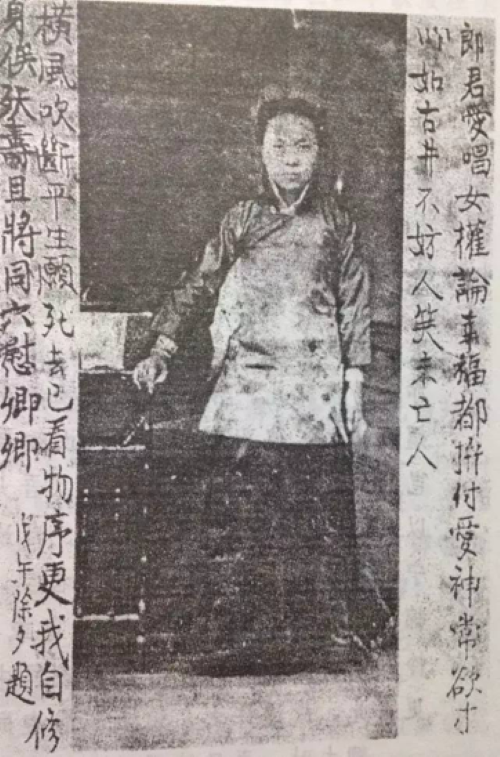 郎君愛唱女權論幸福都拚付愛神常欲寸
心如古井不妨人笑未亡人
橫風吹斷平生願死去已看物序更我自修
身俟殀壽且將同穴慰卿卿
戊午除夕題